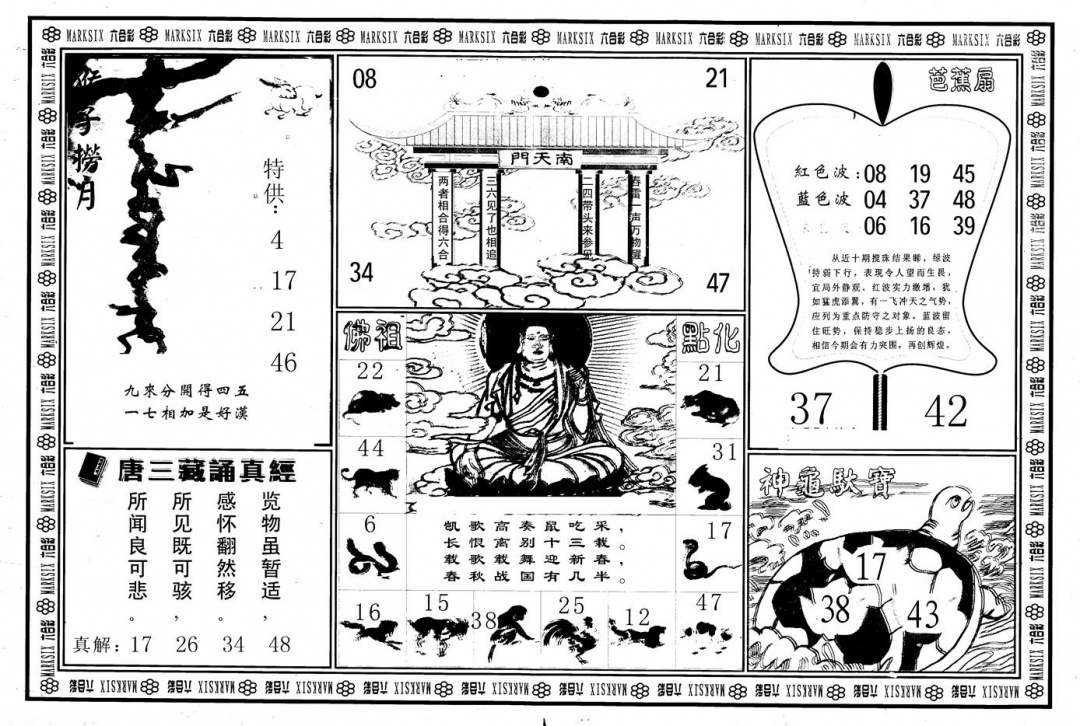 MARKSIX 六合彩 MARKSIX 六合彩 MARKSIX 六合彩 MARKSIX 六合彩 MARKSIX 六合彩 MARKSIX 六合彩 MARKSIX 六合彩 MARKSIX 六合彩 MARKSIX 六合彩 MARKSIX 六合彩
猴子撈月
特供：
4
17
21
46
九來分開得四五
一七相加是好漢
唐三藏誦真經
览物虽暂适，
感怀翻然移。
所见既可骇，
所闻良可悲。
真解：17 26 34 48
08 21
南天門
春雷一声万物醒
二四带头来参见
三六见了也相追
两者相合得六合
34 47
佛祖 點化
22 21
44 31
6 17
凯歌高奏鼠吃采，
长恨离别十三栽。
载歌载舞迎新春，
春秋战国有几半。
16 15 38 25 12 47
芭蕉扇
紅色波：08 19 45
藍色波 04 37 48
06 16 39
从近十期搅珠结果睇，绿波
持弱下行，表现令人望而生畏，
宜局外静观。红波实力激增，犹
如猛虎添翼，有一飞冲天之气势，
应列为重点防守之对象。蓝波留
住旺势，保持稳步上扬的良态，
相信今期会有力突围，再创辉煌。
37 42
神龜馱寶
17
38 43